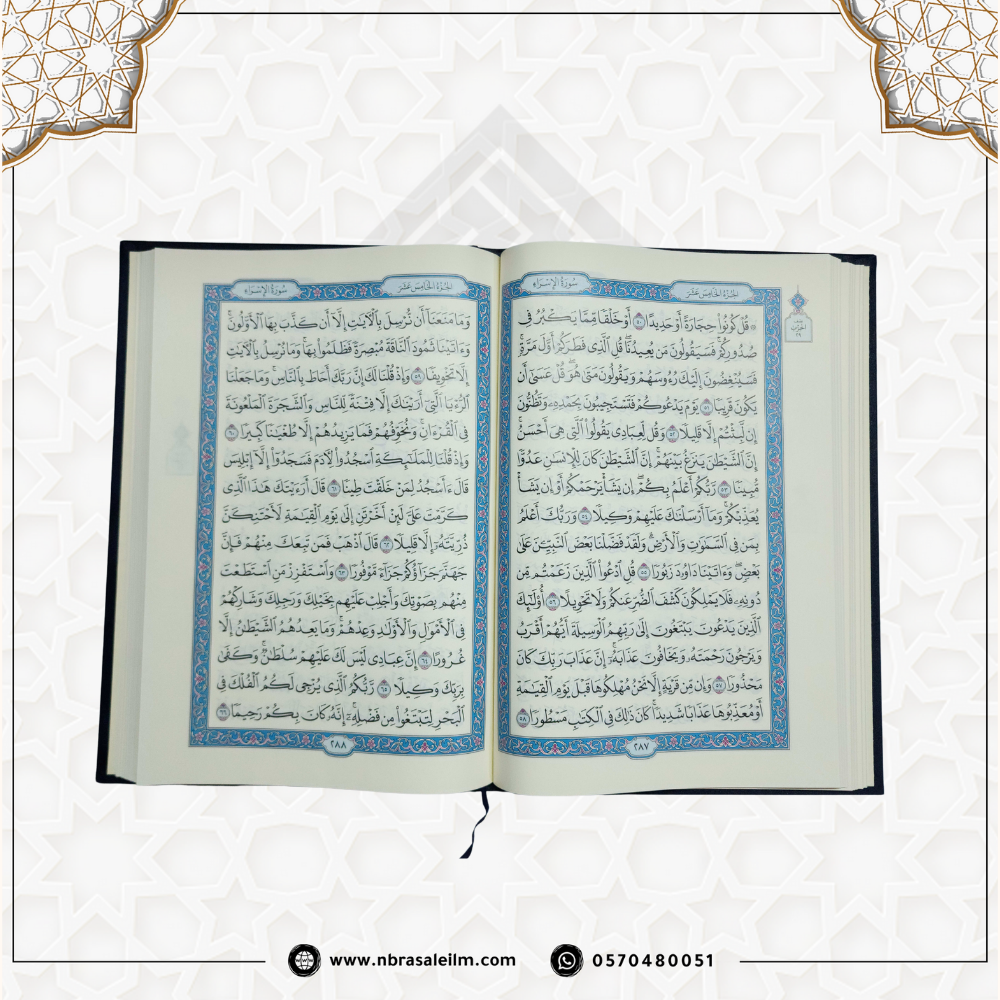 الجُزْءُ الخَامِسَ عَشَرَ
سُورَةُ الإِسْرَاءِ
نصف
الحزب
٢٩
۞ قُلْ كُونُوا۟ حِجَارَةً أَوْ حَدِيدًا ٥٠ أَوْ خَلْقًا مِّمَّا يَكْبُرُ فِى
صُدُورِكُمْ ۚ فَسَيَقُولُونَ مَن يُعِيدُنَا ۖ قُلِ ٱلَّذِى فَطَرَكُمْ أَوَّلَ مَرَّةٍ ۚ
فَسَيُنْغِضُونَ إِلَيْكَ رُءُوسَهُمْ وَيَقُولُونَ مَتَىٰ هُوَ ۖ قُلْ عَسَىٰٓ أَن
يَكُونَ قَرِيبًا ٥١ يَوْمَ يَدْعُوكُمْ فَتَسْتَجِيبُونَ بِحَمْدِهِۦ وَتَظُنُّونَ
إِن لَّبِثْتُمْ إِلَّا قَلِيلًا ٥٢ وَقُل لِّعِبَادِى يَقُولُوا۟ ٱلَّتِى هِىَ أَحْسَنُ ۚ
إِنَّ ٱلشَّيْطَٰنَ يَنزَغُ بَيْنَهُمْ ۚ إِنَّ ٱلشَّيْطَٰنَ كَانَ لِلْإِنسَٰنِ عَدُوًّا
مُّبِينًا ٥٣ رَّبُّكُمْ أَعْلَمُ بِكُمْ ۖ إِن يَشَأْ يَرْحَمْكُمْ أَوْ إِن يَشَأْ
يُعَذِّبْكُمْ ۚ وَمَآ أَرْسَلْنَٰكَ عَلَيْهِمْ وَكِيلًا ٥٤ وَرَبُّكَ أَعْلَمُ
بِمَن فِى ٱلسَّمَٰوَٰتِ وَٱلْأَرْضِ ۗ وَلَقَدْ فَضَّلْنَا بَعْضَ ٱلنَّبِيِّـۧنَ عَلَىٰ
بَعْضٍ ۖ وَءَاتَيْنَا دَاوُۥدَ زَبُورًا ٥٥ قُلِ ٱدْعُوا۟ ٱلَّذِينَ زَعَمْتُم مِّن
دُونِهِۦ فَلَا يَمْلِكُونَ كَشْفَ ٱلضُّرِّ عَنكُمْ وَلَا تَحْوِيلًا ٥٦ أُو۟لَٰٓئِكَ
ٱلَّذِينَ يَدْعُونَ يَبْتَغُونَ إِلَىٰ رَبِّهِمُ ٱلْوَسِيلَةَ أَيُّهُمْ أَقْرَبُ
وَيَرْجُونَ رَحْمَتَهُۥ وَيَخَافُونَ عَذَابَهُۥٓ ۚ إِنَّ عَذَابَ رَبِّكَ كَانَ
مَحْذُورًا ٥٧ وَإِن مِّن قَرْيَةٍ إِلَّا نَحْنُ مُهْلِكُوهَا قَبْلَ يَوْمِ ٱلْقِيَٰمَةِ
أَوْ مُعَذِّبُوهَا عَذَابًا شَدِيدًا ۚ كَانَ ذَٰلِكَ فِى ٱلْكِتَٰبِ مَسْطُورًا ٥٨
٢٨٧
الجُزْءُ الخَامِسَ عَشَرَ
سُورَةُ الإِسْرَاءِ
وَمَا مَنَعَنَآ أَن نُّرْسِلَ بِٱلْـَٔايَٰتِ إِلَّآ أَن كَذَّبَ بِهَا ٱلْأَوَّلُونَ ۚ
وَءَاتَيْنَا ثَمُودَ ٱلنَّاقَةَ مُبْصِرَةً فَظَلَمُوا۟ بِهَا ۚ وَمَا نُرْسِلُ بِٱلْـَٔايَٰتِ
إِلَّا تَخْوِيفًا ٥٩ وَإِذْ قُلْنَا لَكَ إِنَّ رَبَّكَ أَحَاطَ بِٱلنَّاسِ ۚ وَمَا جَعَلْنَا
ٱلرُّءْيَا ٱلَّتِىٓ أَرَيْنَٰكَ إِلَّا فِتْنَةً لِّلنَّاسِ وَٱلشَّجَرَةَ ٱلْمَلْعُونَةَ
فِى ٱلْقُرْءَانِ ۚ وَنُخَوِّفُهُمْ فَمَا يَزِيدُهُمْ إِلَّا طُغْيَٰنًا كَبِيرًا ٦٠
وَإِذْ قُلْنَا لِلْمَلَٰٓئِكَةِ ٱسْجُدُوا۟ لِـَٔادَمَ فَسَجَدُوٓا۟ إِلَّآ إِبْلِيسَ
قَالَ ءَأَسْجُدُ لِمَنْ خَلَقْتَ طِينًا ٦١ قَالَ أَرَءَيْتَكَ هَٰذَا ٱلَّذِى
كَرَّمْتَ عَلَىَّ لَئِنْ أَخَّرْتَنِ إِلَىٰ يَوْمِ ٱلْقِيَٰمَةِ لَأَحْتَنِكَنَّ
ذُرِّيَّتَهُۥٓ إِلَّا قَلِيلًا ٦٢ قَالَ ٱذْهَبْ فَمَن تَبِعَكَ مِنْهُمْ فَإِنَّ
جَهَنَّمَ جَزَآؤُكُمْ جَزَآءً مَّوْفُورًا ٦٣ وَٱسْتَفْزِزْ مَنِ ٱسْتَطَعْتَ
مِنْهُم بِصَوْتِكَ وَأَجْلِبْ عَلَيْهِم بِخَيْلِكَ وَرَجِلِكَ وَشَارِكْهُمْ
فِى ٱلْأَمْوَٰلِ وَٱلْأَوْلَٰدِ وَعِدْهُمْ ۚ وَمَا يَعِدُهُمُ ٱلشَّيْطَٰنُ إِلَّا
غُرُورًا ٦٤ إِنَّ عِبَادِى لَيْسَ لَكَ عَلَيْهِمْ سُلْطَٰنٌ ۚ وَكَفَىٰ
بِرَبِّكَ وَكِيلًا ٦٥ رَّبُّكُمُ ٱلَّذِى يُزْجِى لَكُمُ ٱلْفُلْكَ فِى
ٱلْبَحْرِ لِتَبْتَغُوا۟ مِن فَضْلِهِۦٓ ۚ إِنَّهُۥ كَانَ بِكُمْ رَحِيمًا ٦٦
٢٨٨
www.nbrasaleilm.com
0570480051